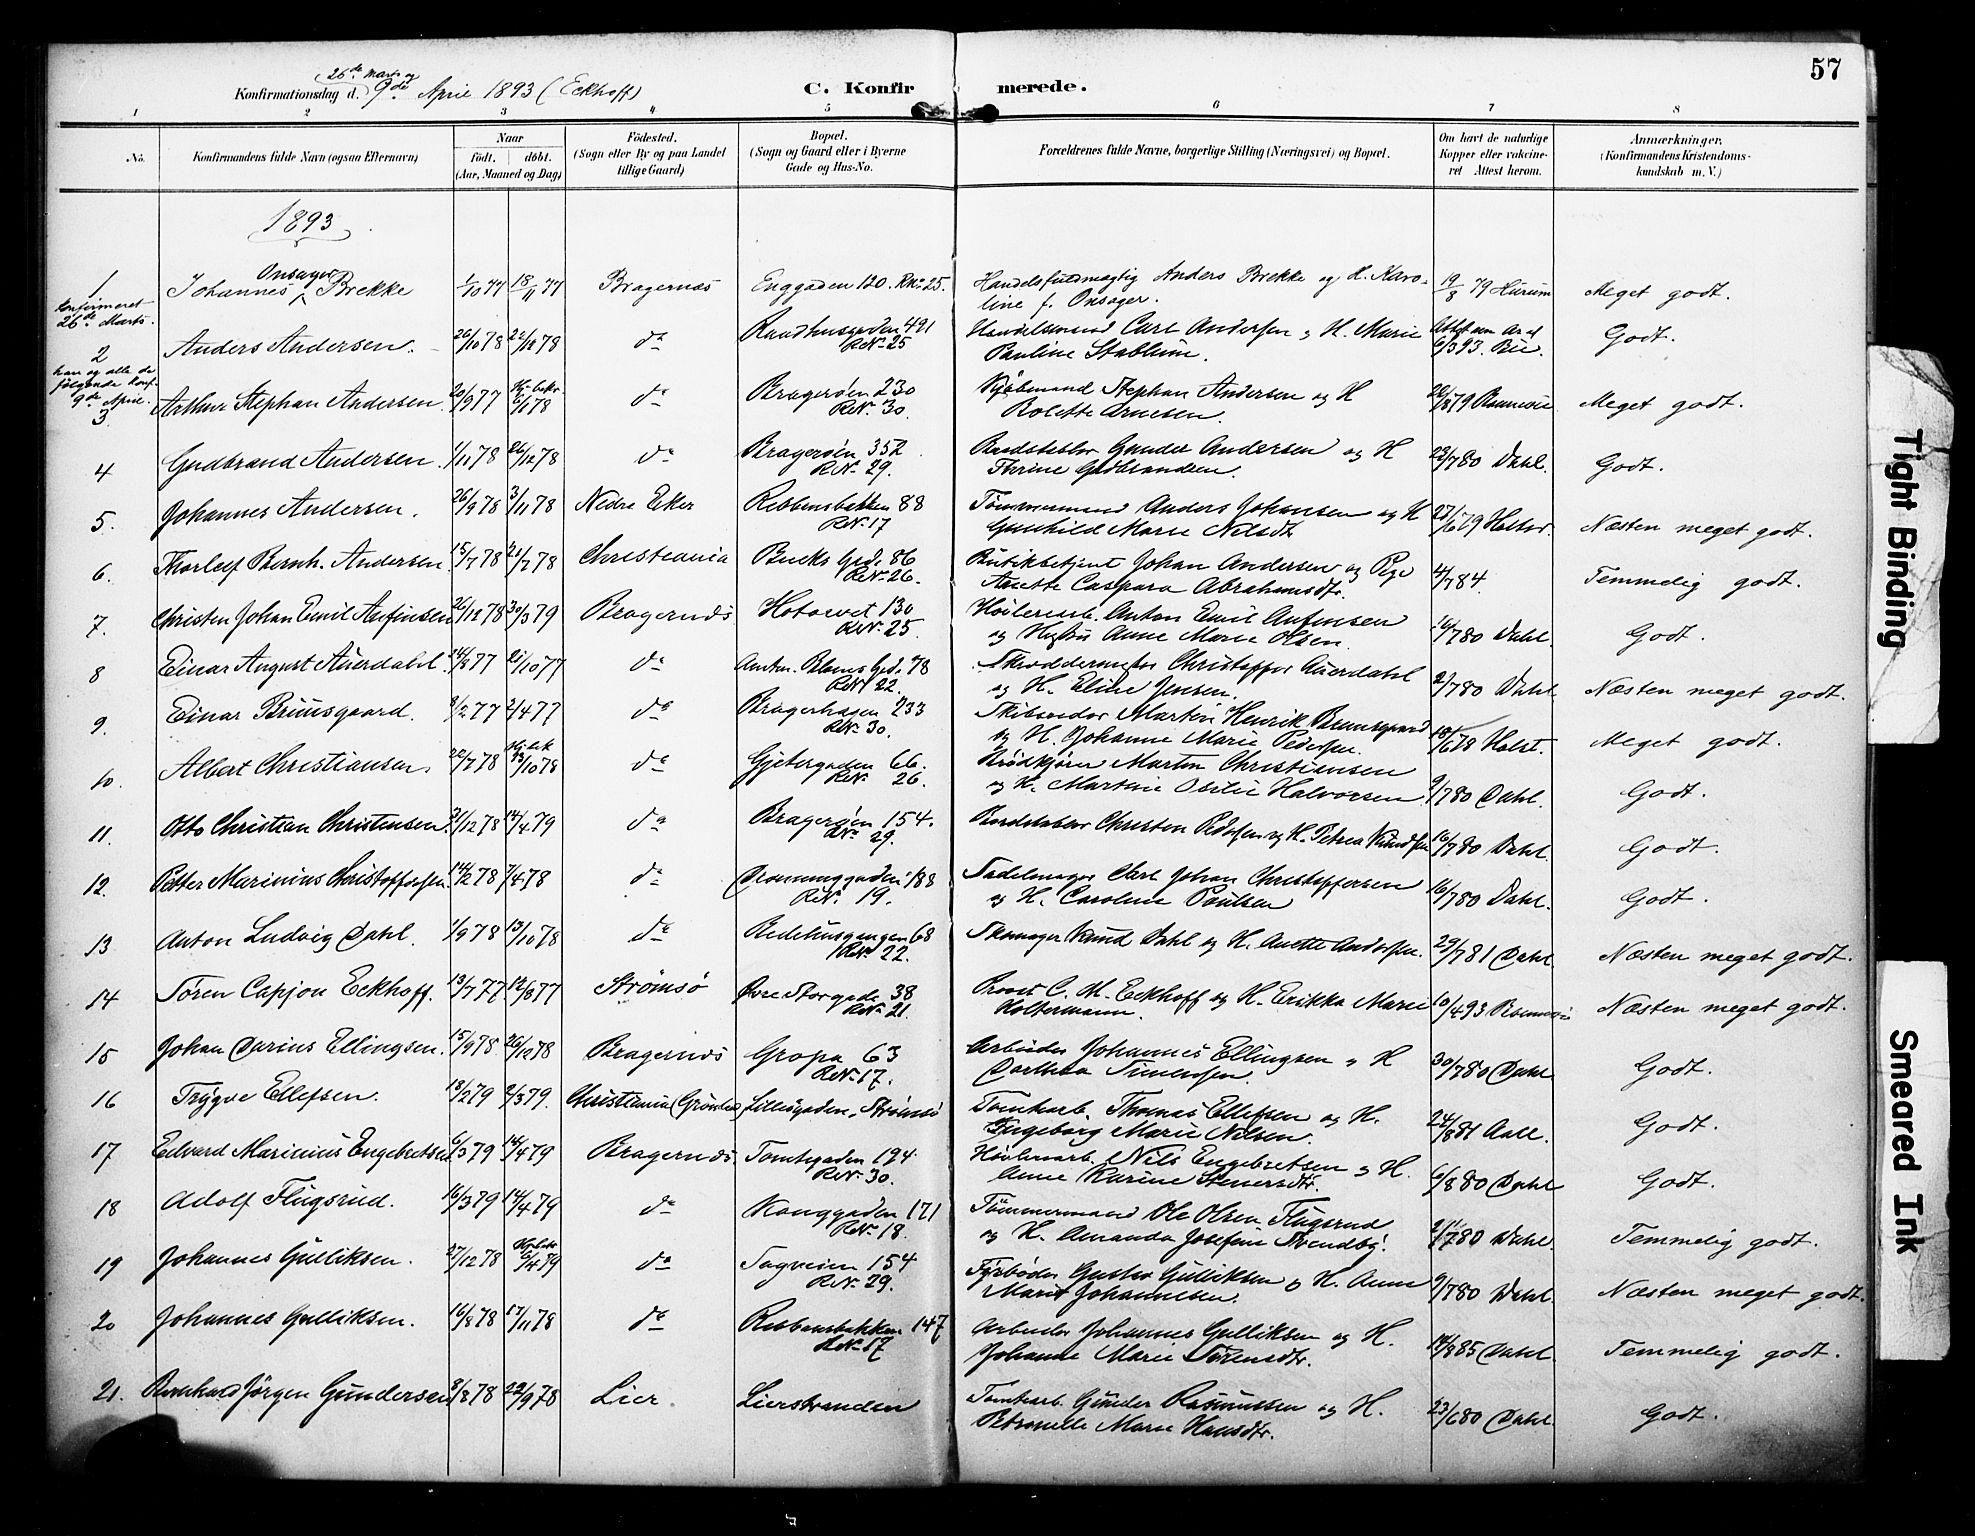 57
26de Marts og
Konfirmationsdag d. 9de April 1893 (Eckhoff)
C. Konfirmerede.
1 2 3 4 5 6 7 8
No. Konfirmandens fulde Navn (ogsaa Efternavn) Naar født. døbt. (Aar, Maaned og Dag) Fødested. (Sogn eller By og paa Landet tillige Gaard) Bopæl. (Sogn og Gaard eller i Byerne Gade og Hus-No. Forældrenes fulde Navne, borgerlige Stilling (Næringsvei) og Bopæl. Om havt de naturlige Kopper eller vakcineret Attest herom. Anmærkninger. (Konfirmandens Kristendomskundskab m. V.)
1893
1 Johannes Onsager Brekke 1/10 77 18/11 77 Bragernæs Enggaden 120. RNo 25. Handelsfuldmægtig Anders Brekke og H. Karoline f. Onsager. 19/8 79 Hurum Meget godt.
konfirmeret 26de Marts.
2 Anders Andersen. 26/10 78 do Raadhusgaden 491 RNo 25 Handelsmand Carl Andersen og H. Marie Pauline 6/3 93. Godt.
han og alle de følgende konf. 9de April.
3 Arthur Stephan Andersen 20/9 77 6/1 78 do Bragerøen 230 RNo. 30. Kjøbmand Stephan Andersen og H Rolette Arnesen. Meget godt.
4 Gudbrand Andersen. 1/11 78 26/12 78 do Bragerøen 352 RNo. 29. Gunder Andersen og H Therine Gudbrandsen. 22/7 80 Dahl. Godt.
5. Johannes Andersen. 26/9 78 3/11 78 Nedre Eker Ribbensbakken 88 RNo. 17 Tømmermand Anders Johansen og H Gunhild Marie Nilsdt 27/6 79 Næsten meget godt.
6. Thorleif Bernh. Andersen. 15/1 78 21/7 78 Christiania Bucks Gd. 86 RNo. 26. Butikbetjent Johan Andersen og Pige Anette Caspara Abrahamsdtr. 4/7 84. Temmelig godt.
7. Christen Johan Emil Anfinsen 26/12 78 30/3 79 Bragernæs Hotorvet 130 RNo. 25. Høvleriarb. Anton Emil Anfinsen og Hustru Anne Marie Olsen. 16/7 80 Dahl. Godt.
8 Einar August Auerdahl. 14/8 77 21/10 77 do Anton Bloms Gd. 78 RNo 22. Skræddermester Christopher Auerdahl og H. Eline Jensen. 2/7 80 Dahl Næsten meget godt.
9. Einar Bruusgaard. 3/2 77 2/4 77 do Bragerhagen 233 RNo. 30. Skibsreder Martin Henrik Bruusgaard og H. Johanne Marie Pedersen. 18/6 78 Holst. Meget godt.
10. Albert Christiansen. 22/7 78 13/10 78 do Gjetergaden 66. RNo. 26. Brødkjører Martin Christiansen og H. Martine Otilie Halvorsen 9/7 80 Dahl. Godt.
11. Otto Christian Christensen. 31/12 78 14/4 79 do Bragerøen 154. RNo. 29. Christen Pedersen og H. Petrea Knudsen 16/7 80 Dahl. Godt.
12. Petter Marinius Christoffersen 14/2 78 7/4 78 do Dronninggaden 188 RNo. 19. Sadelmager Carl Johan Christoffersen og H. Caroline Poulsen 16/7 80 Dahl. Godt.
13 Anton Ludvig Dahl. 1/9 78 13/10 78 do Redehusgangen 68 RNo. 22. Skomager Knud Dahl og H. Anette Andersen. 29/7 81 Dahl Næsten meget godt.
14 Søren Capjon Eckhoff. 13/7 77 12/8 77 Strømsø Øvre Storgade 38 RNo. 21. Provst C. M. Eckhoff og H. Erikka Marie Holtermann. 10/4 93 Næsten meget godt.
15 Johan Darius Ellingsen. 15/9 78 26/12 78 Bragernæs Gropa 63 RNo. 17. Arbeider Johannes Ellingsen og H Dorthea 30/7 80 Dahl Godt.
16 Trygve Ellefsen. 13/2 79 2/3 79. Christiania (Grønland) Lilliesgaden, Strømsø Tomtearb. Thomas Ellefsen og H. Ingeborg Marie Nilsen. 24/8 81 Aall. Godt.
17 Edvard Marinius Engebretsen 6/3 79 14/4 79 Bragernæs. Tomtegaden 194. RNo. 30. Høvleriarb. Nils Engebretsen og H. Anne Karine Steenersdtr. 6/8 80 Dahl Godt.
18 Adolf Flugsrud. 16/3 79 14/4 79 do Konggaden 171 RNo. 18. Tømmermand Ole Olsen Flugsrud og H. Amanda Josefine Svendby. 2/7 80 Dahl. Temmelig godt.
19 Johannes Gulliksen. 27/12 78 6/4 79 do Sagveien 154 RNo. 29. Fyrbøder Gustav Gulliksen og H. Anne Marie Johannesen. 9/7 80 Dahl. Næsten meget godt.
20 Johannes Gulliksen. 16/8 78 17/11 78 do Ribbensbakken 147 RNo. 17 Arbeider Johannes Gulliksen og H. Johanne Marie Sørensdtr. 14/8 85 Dahl. Temmelig godt.
21. Bernhard Jørgen Gundersen 8/8 78 22/9 78 Lier. Lierstranden Tomtearb. Gunder Rasmussen og H. Petronelle Marie Hansdtr. 23/6 80 Dahl. Godt.
Tight Binding
Smeared Ink